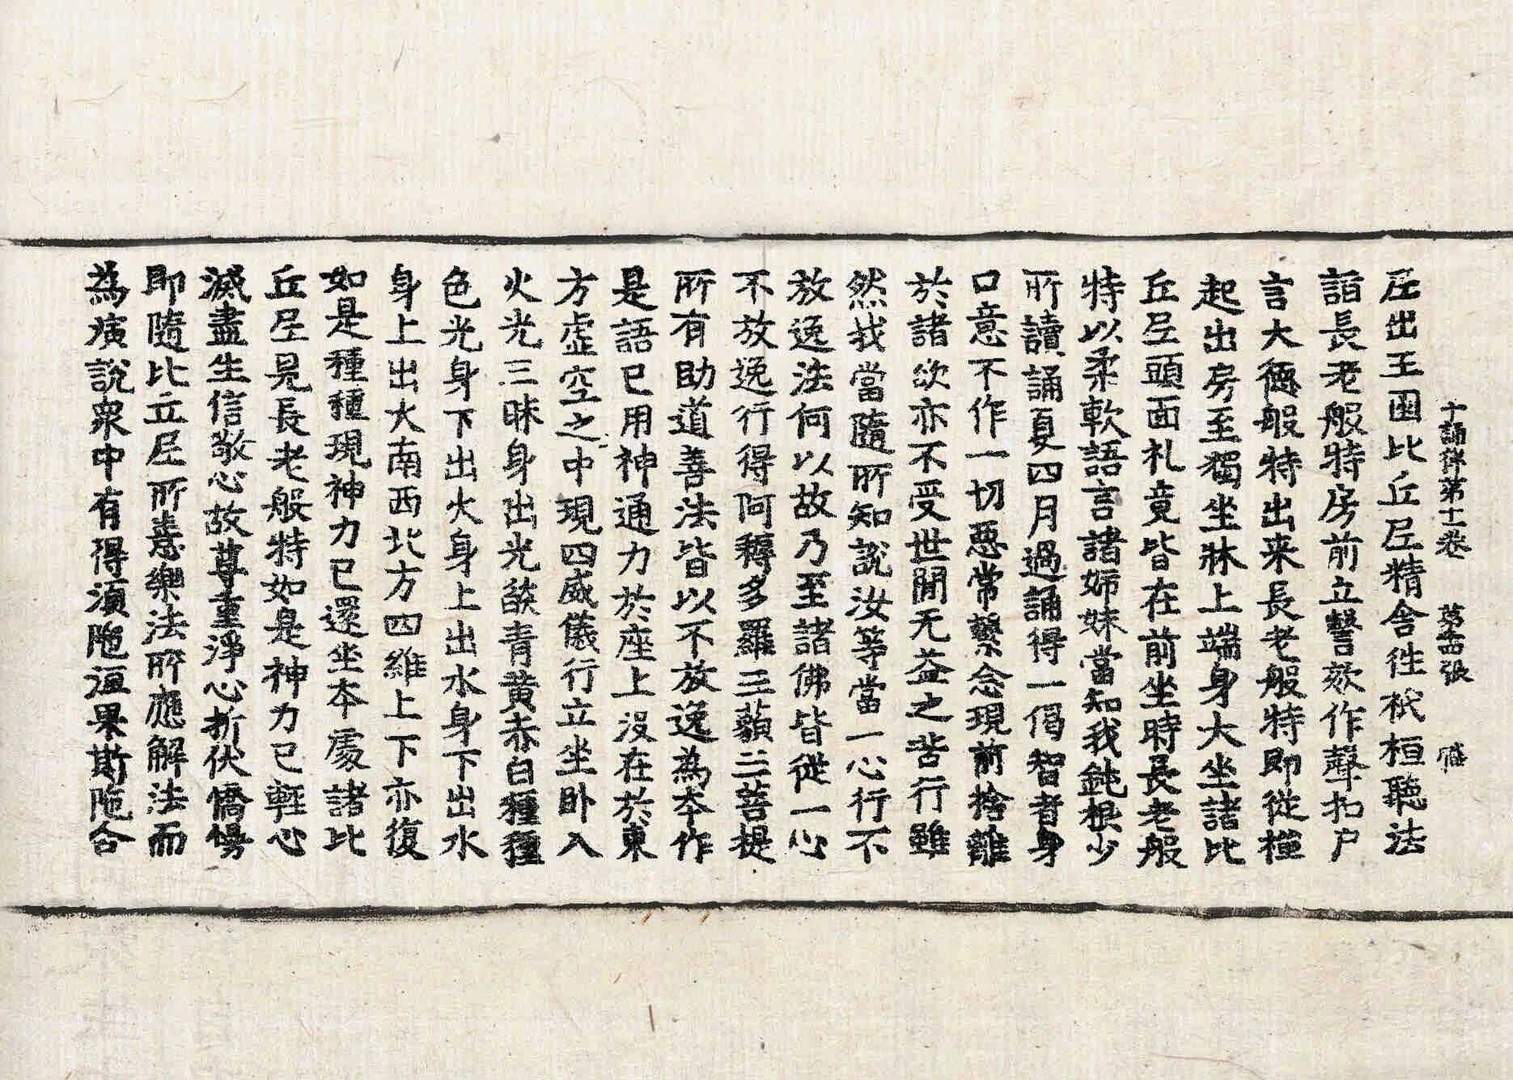 十誦律第十一卷 第六張 廐
尼出王園比丘尼精舍往祇桓聽法
詣長老般特房前立謦欬作聲扣戶
言大德般特出来長老般特即從禪
起出房至獨坐牀上端身大坐諸比
丘尼頭面礼竟皆在前坐時長老般
特以柔軟語言諸姊妹當知我鈍根少
所讀誦夏四月過誦得一偈智者身
口意不作一切惡常繫念現前捨離
於諸欲亦不受世間无益之苦行雖
然我當隨所知說汝等當一心行不
放逸法何以故乃至諸佛皆從一心
不放逸行得阿耨多羅三藐三菩提
所有助道善法皆以不放逸為本作
是語已用神通力於座上沒在於東
方虛空之中現四威儀行立坐卧入
火光三昧身出光燄青黄赤白種種
色光身下出火身上出水身下出水
身上出火南西北方四維上下亦復
如是種種現神力已還坐本處諸比
丘尼見長老般特如是神力已輕心
滅盡生信敬心故尊重淨心折伏憍慢
即隨比丘尼所憙樂法所應解法而
為演說衆中有得湏陁洹果斯陁含